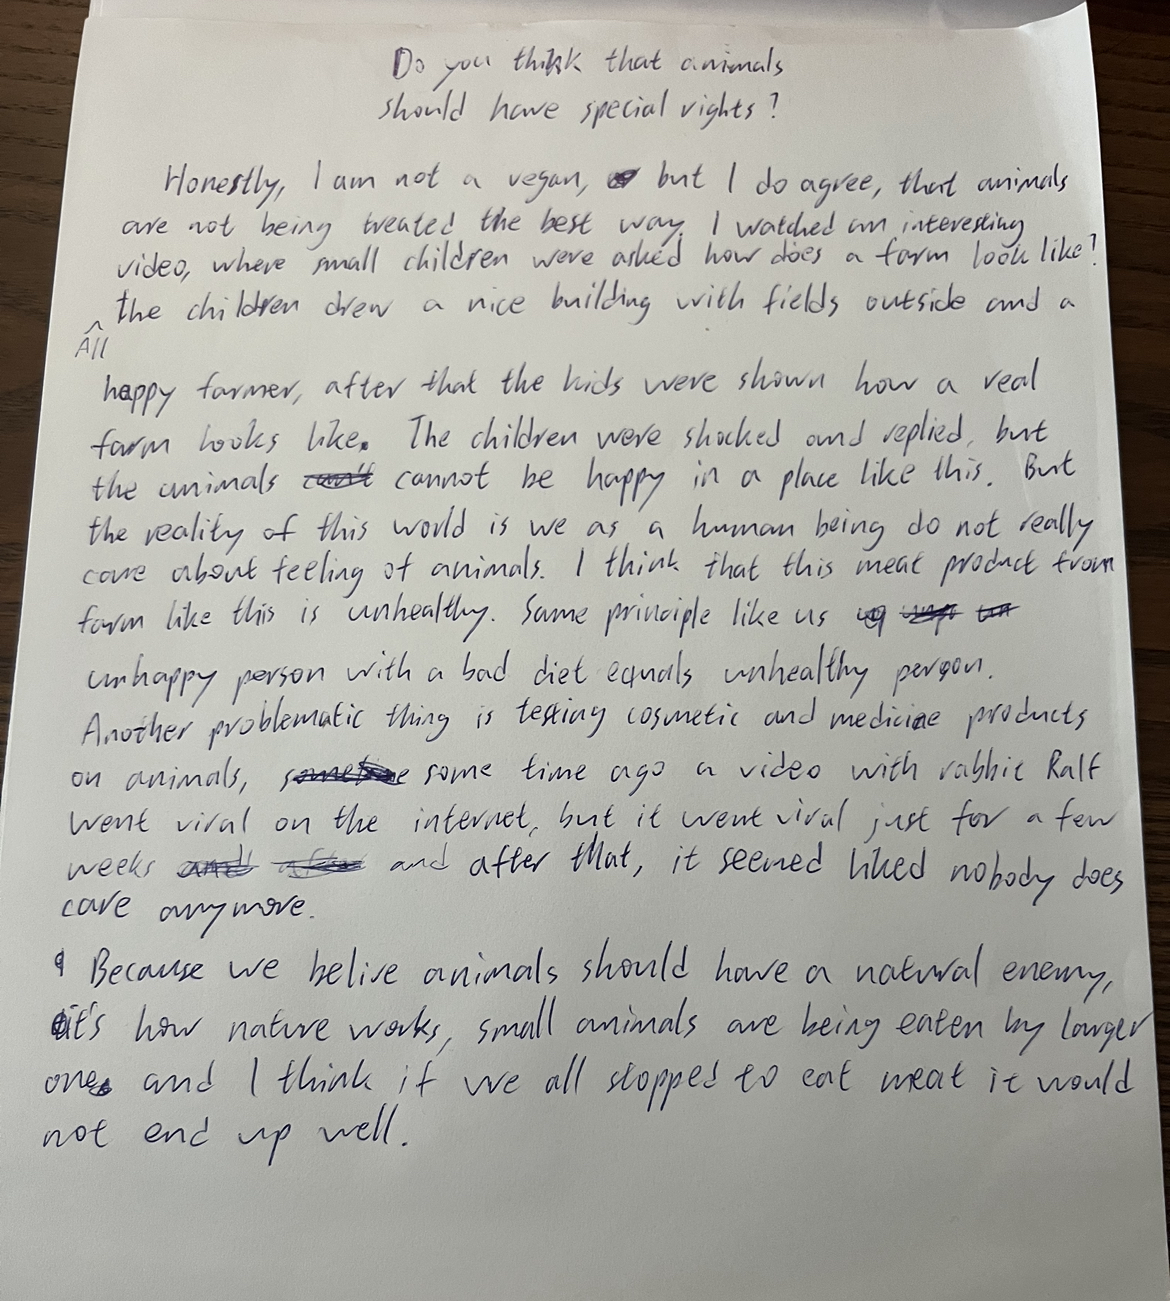 Do you think that animals
should have special rights?
Honestly, I am not a vegan, but I do agree, that animals
are not being treated the best way. I watched an interesting
video, where small children were asked how does a farm look like?
All the children drew a nice building with fields outside and a
happy farmer, after that the kids were shown how a real
farm looks like. The children were shocked and replied, but
the animals cannot be happy in a place like this. But
the reality of this world is we as a human being do not really
care about feeling of animals. I think that this meat product from
farm like this is unhealthy. Same principle like us
unhappy person with a bad diet equals unhealthy person.
Another problematic thing is testing cosmetic and medicine products
on animals, some time ago a video with rabbit Ralf
went viral on the internet, but it went viral just for a few
weeks and after that, it seemed liked nobody does
care anymore.
Because we belive animals should have a natural enemy,
it's how nature works, small animals are being eaten by larger
ones and I think if we all stopped to eat meat it would
not end up well.